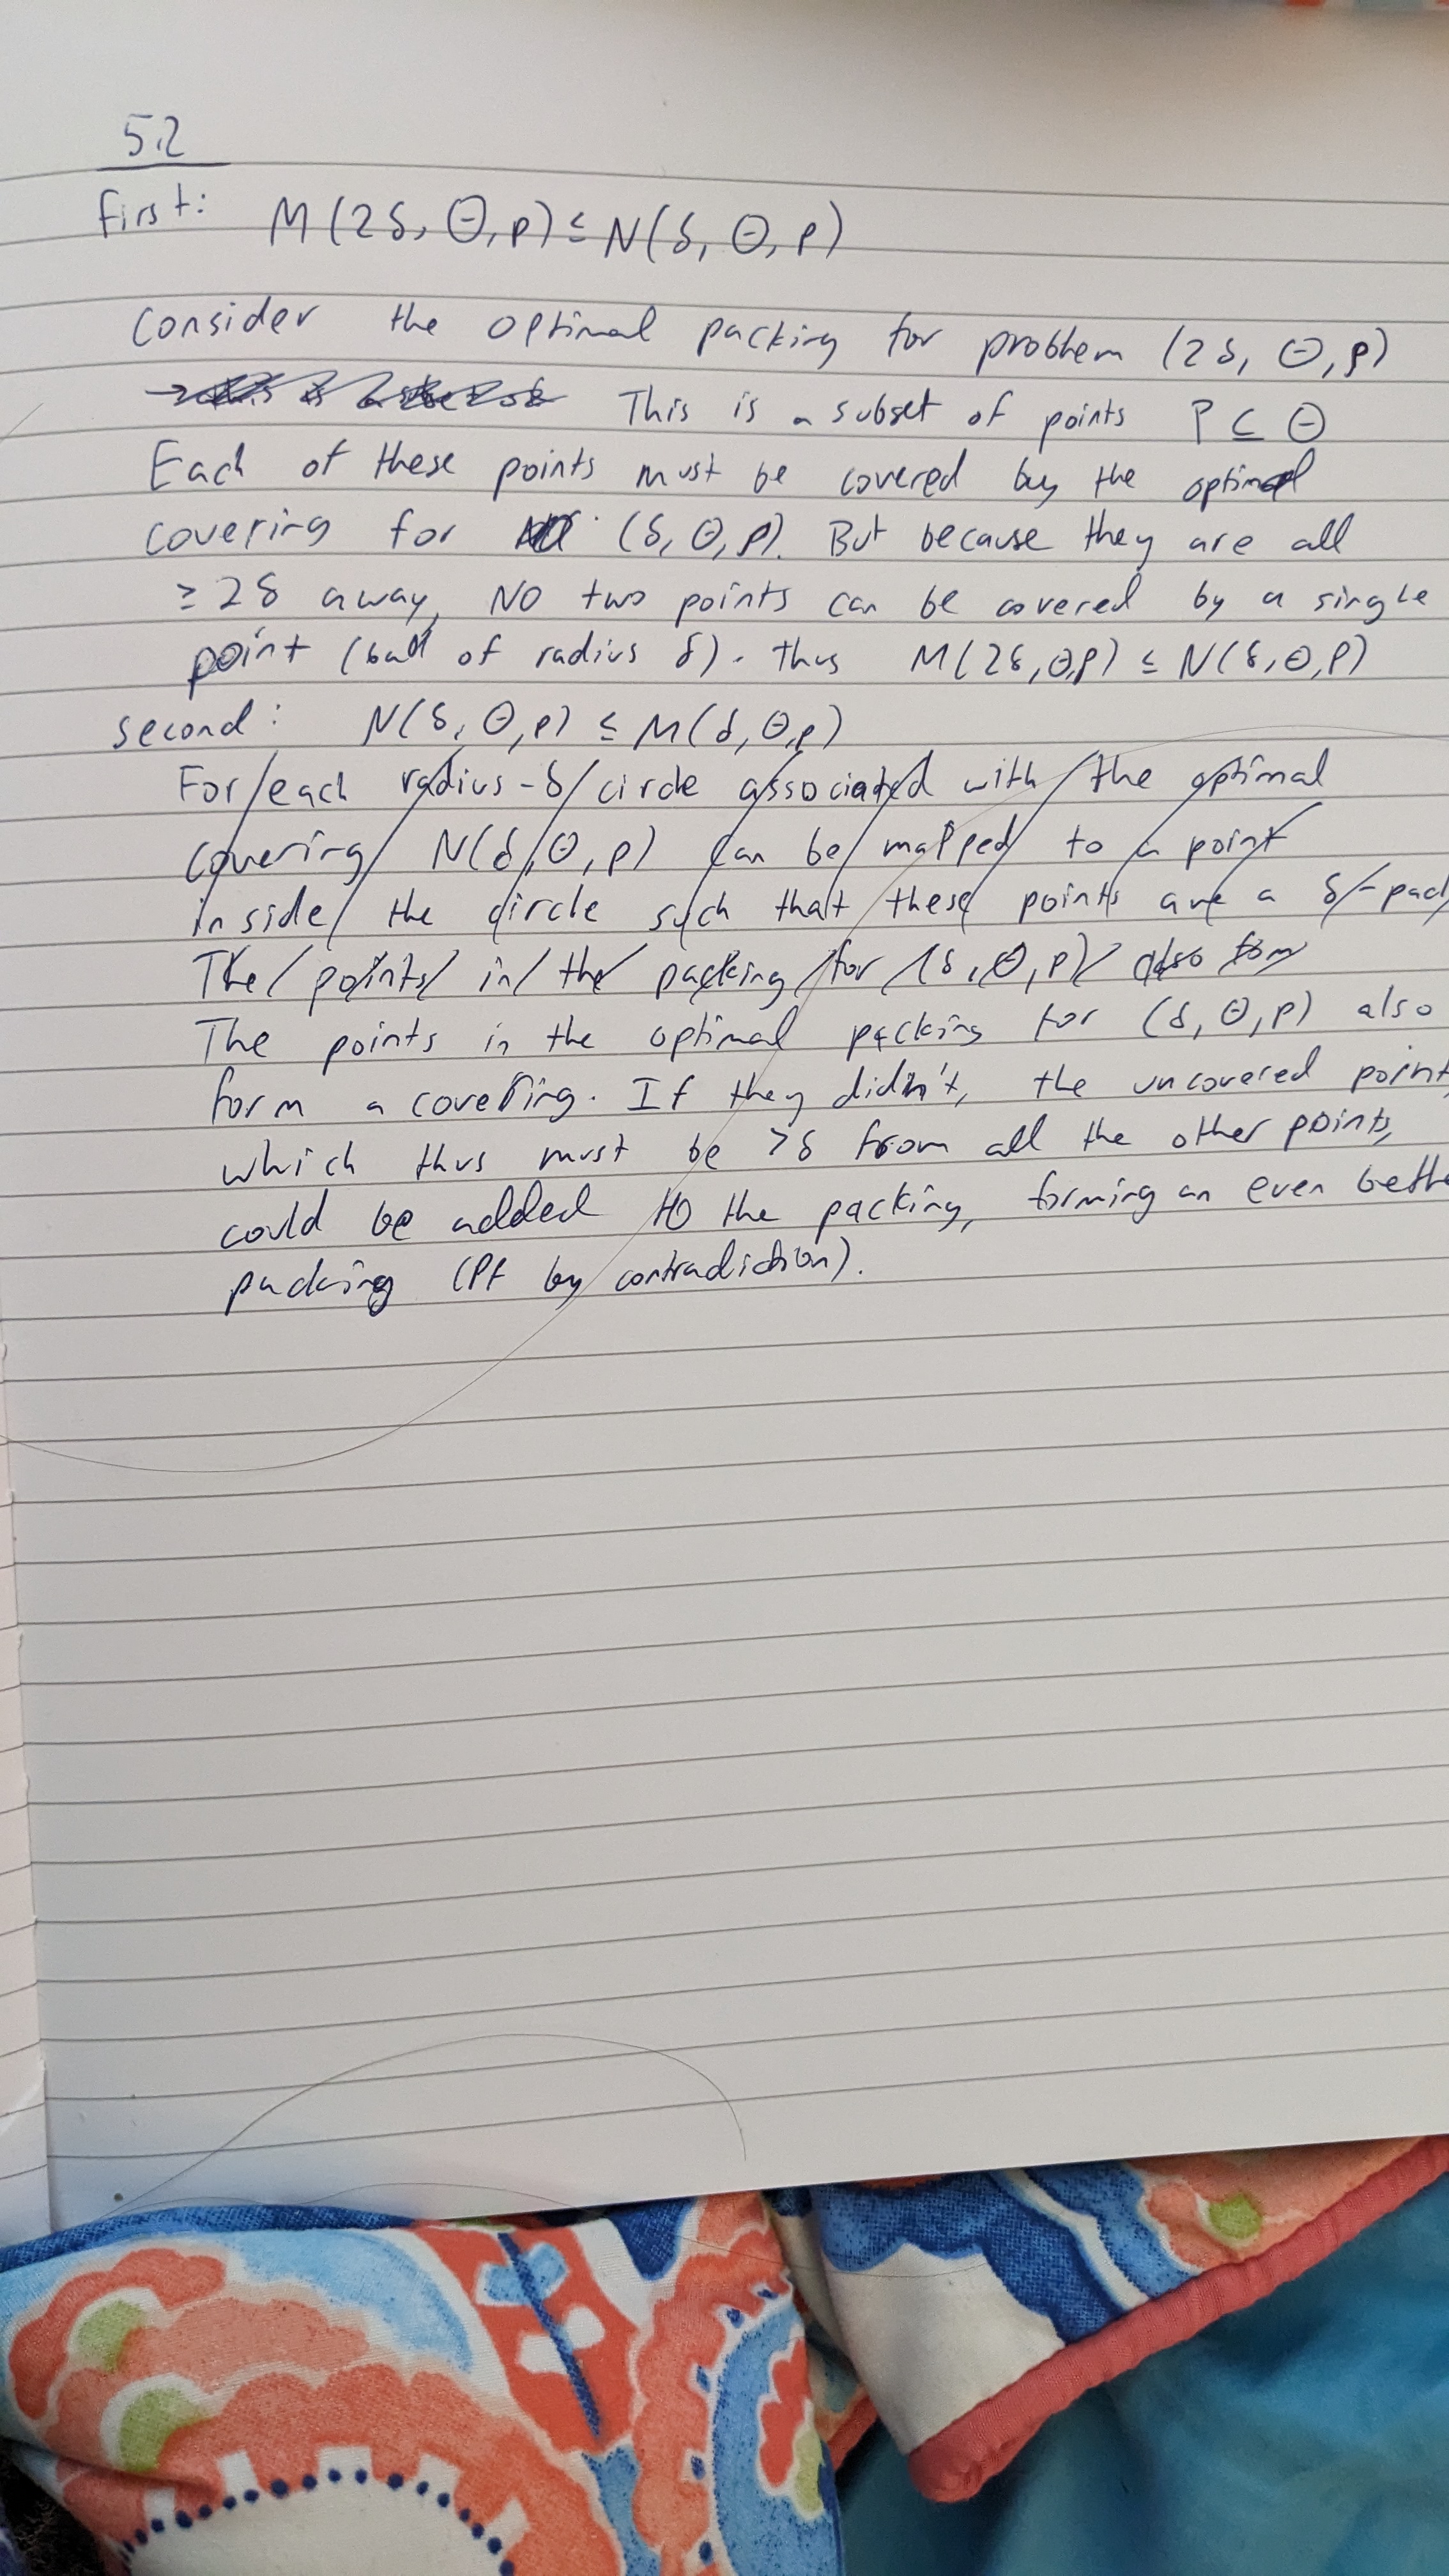 5.2
first: M(2δ, Θ, ρ) ≤ N(δ, Θ, ρ)
Consider the optimal packing for problem (2δ, Θ, ρ)
→ This is a subset of points P ⊆ Θ
Each of these points must be covered by the optimal
covering for (δ, Θ, ρ). But because they are all
≥ 2δ away, NO two points can be covered by a single
point (ball of radius δ). thus M(2δ, Θ, ρ) ≤ N(δ, Θ, ρ)
second: N(δ, Θ, ρ) ≤ M(δ, Θ, ρ)
For each radius-δ circle associated with the optimal
covering N(δ, Θ, ρ) can be mapped to a point
inside the circle such that these points are a δ-pack
The points in the packing for (δ, Θ, ρ) also form
The points in the optimal packing for (δ, Θ, ρ) also
form a covering. If they didn't, the uncovered point,
which thus must be >δ from all the other points,
could be added to the packing, forming an even bette
packing (Pf by contradiction).